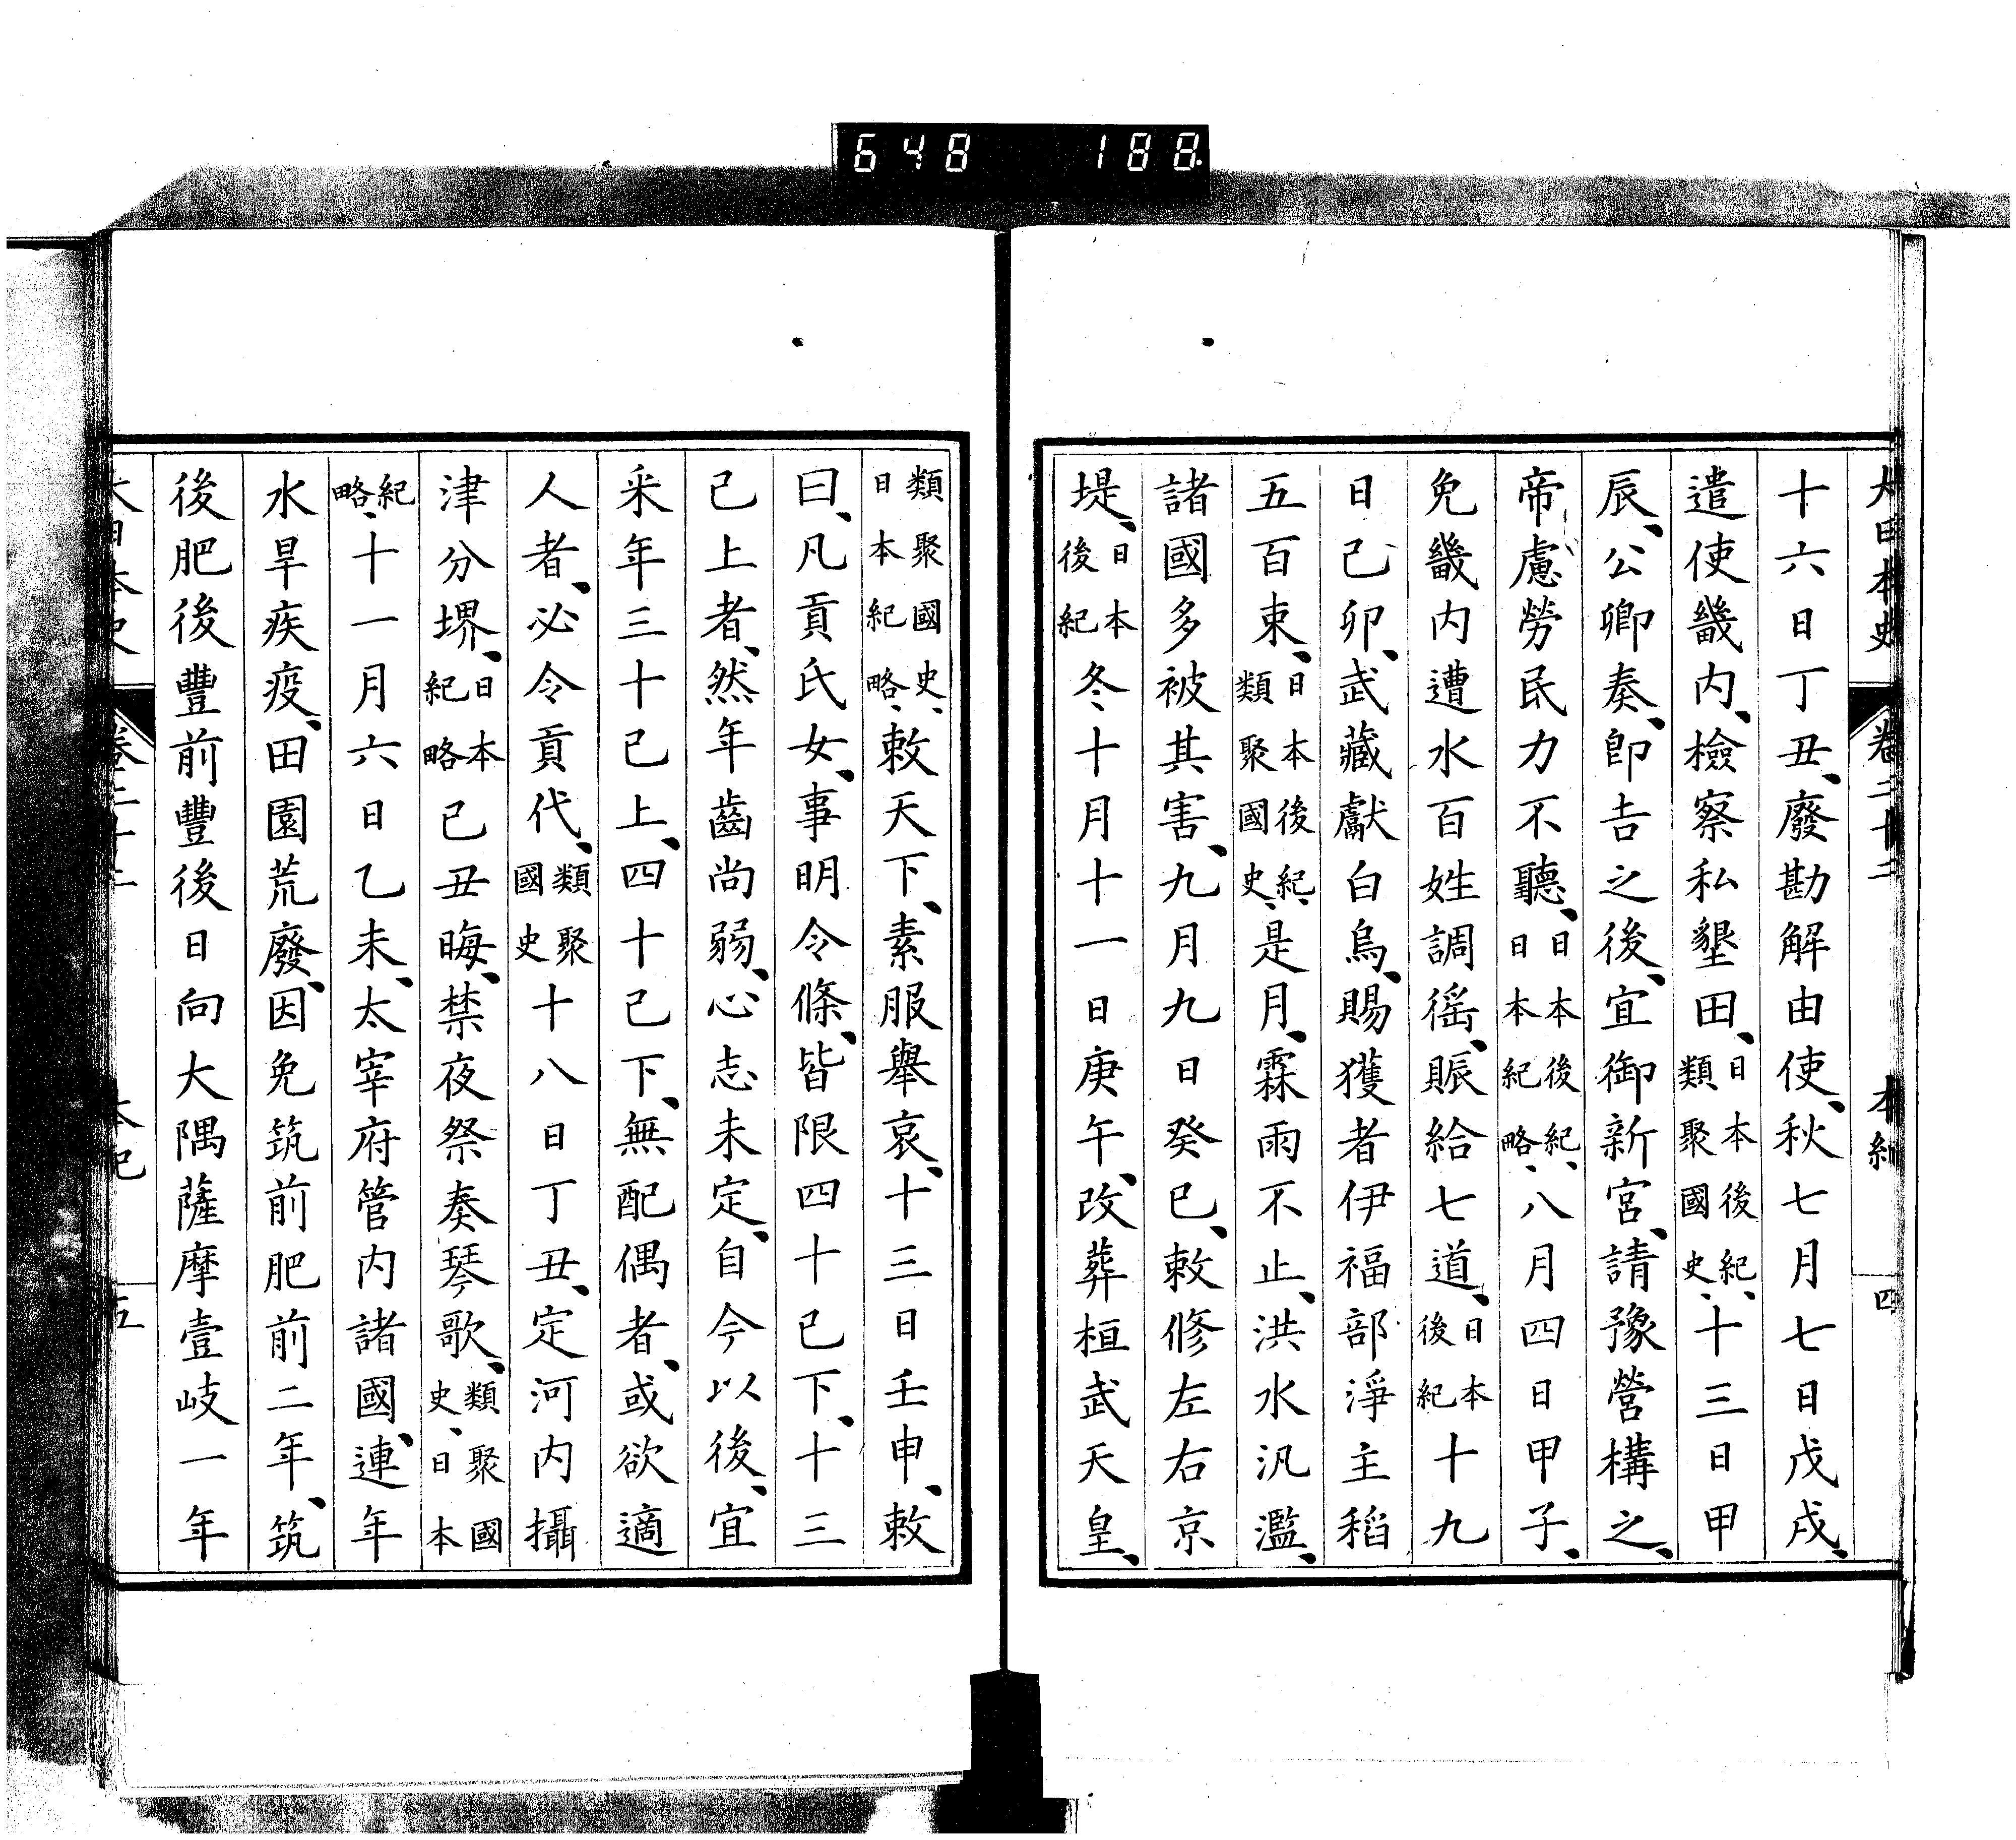 648 188
大日本史 卷二十二 本紀 四
十六日丁丑、廢勘解由使、秋七月七日戊戌、
遣使畿內、檢察私墾田、日本後紀、類聚國史、十三日甲
辰、公卿奏、卽吉之後、宜御新宮、請豫營構之、
帝慮勞民力不聽、日本後紀、日本紀略、八月四日甲子、
免畿內遭水百姓調徭、賑給七道、日本後紀十九
日己卯、武藏獻白烏、賜獲者伊福部淨主稻
五百束、日本後紀、類聚國史、是月、霖雨不止、洪水汎濫、
諸國多被其害、九月九日癸巳、敕修左右京
堤、日本後紀冬十月十一日庚午、改葬桓武天皇、
類聚國史、日本紀略、敕天下、素服舉哀、十三日壬申、敕
曰、凡貢氏女、事明令條、皆限四十已下、十三
已上者、然年齒尚弱、心志未定、自今以後、宜
采年三十已上、四十已下、無配偶者、或欲適
人者、必令貢代、類聚國史十八日丁丑、定河內攝
津分堺、日本紀略己丑晦、禁夜祭奏琴歌、類聚國史、日本
紀略、十一月六日乙未、太宰府管內諸國、連年
水旱疾疫、田園荒廢、因免筑前肥前二年、筑
後肥後豐前豐後日向大隅薩摩壹岐一年
大日本史 卷二十二 本紀 五